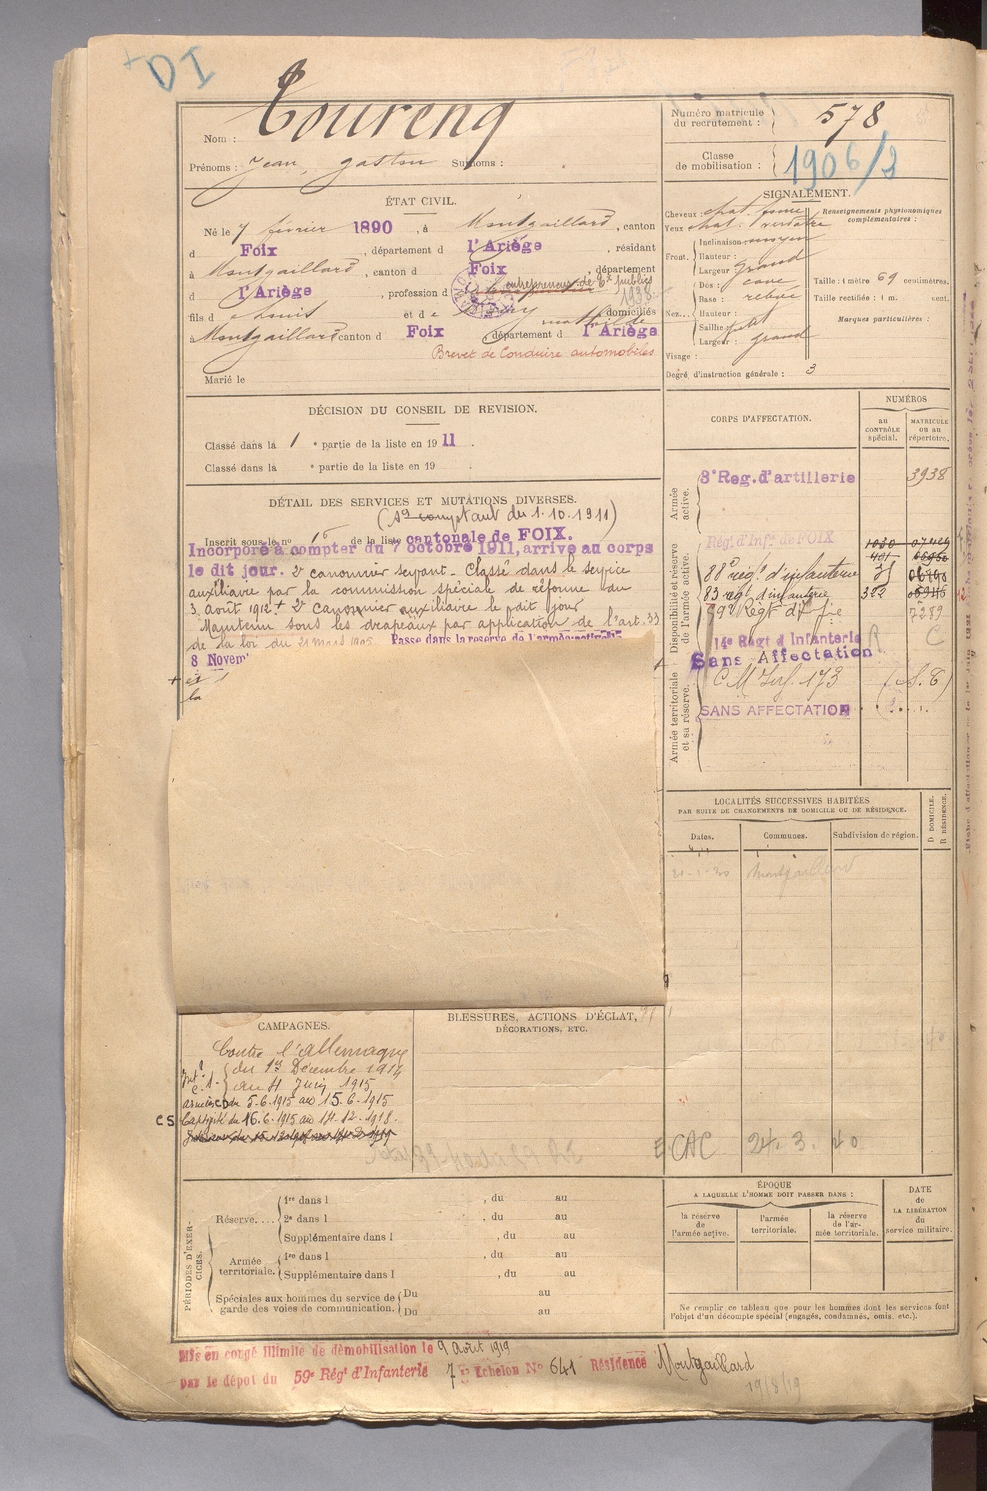 DI
Nom : Toureng
Prénoms : Jean, gaston Surnoms :
Numéro matricule du recrutement : 578
Classe de mobilisation : 1906/2
ÉTAT CIVIL.
Né le 7 février 1890, à Montgaillard, canton
d Foix, département d l'Ariège, résidant
à Montgaillard, canton d Foix, département
d l'Ariège, profession d entrepreneur de tx publics
1938
fils de Louis et de mathilde domiciliés
Montgaillard canton d Foix, département d l'Ariège
Brevet de Conduire automobiles
Marié le
SIGNALEMENT.
Cheveux : chat. foncé
Yeux chat. verdâtre
Renseignements physionomiques complémentaires :
Front. Inclinaison moyen
Hauteur :
Largeur grand
Nez. Dos : cave
Base : relevé
Hauteur :
Saillie petit
Largeur : grand
Taille : 1 mètre 69 centimètres.
Taille rectifiée : 1 m. cent.
Marques particulières :
Visage :
Degré d'instruction générale : 3
DÉCISION DU CONSEIL DE REVISION.
Classé dans la 1 e partie de la liste en 1911.
Classé dans la e partie de la liste en 19 .
DÉTAIL DES SERVICES ET MUTATIONS DIVERSES.
(Sce comptant du 1.10.1911)
Inscrit sous le no 16 de la liste cantonale de FOIX.
Incorporé à compter du 7 octobre 1911, arrivé au corps
le dit jour. 2e canonnier servant. Classé dans le service
auxiliaire par la commission spéciale de réforme du
3 août 1912 + 2e Canonnier auxiliaire le dit jour
Maintenu sous les drapeaux par application de l'art. 33
de la loi du 21 mars 1905 Passe dans la réserve de l'armée active
8 Novem
et
la
CORPS D'AFFECTATION.
NUMÉROS
AU CONTRÔLE spécial.
MATRICULE OU AU répertoire.
Armée active.
8e Reg. d'artillerie 3938
Disponibilité et réserve de l'armée active.
Régt d'Infie de FOIX 1030 07429
88e régt d'infanterie
83 régt d'infanterie 322
59e Régt d'Infie 7289
14e Régt d'Infanterie
Sans Affectation
Armée territoriale et sa réserve.
C M Inf. 173 (S.E)
SANS AFFECTATION
LOCALITÉS SUCCESSIVES HABITÉES
PAR SUITE DE CHANGEMENTS DE DOMICILE OU DE RÉSIDENCE.
Dates. Communes. Subdivision de région. D DOMICILE. R RÉSIDENCE.
Montgaillard
CAMPAGNES.
Contre l'allemagne
Int. C.S. du 1er Décembre 1914
au 4 Juin 1915
armées CD du 5.6.1915 au 15.6.1915
CS Captivité du 16.6.1915 au 14.12.1918.
BLESSURES, ACTIONS D'ÉCLAT,
DÉCORATIONS, ETC.
CAC 24. 3. 40
PÉRIODES D'EXERCICES.
Réserve.... 1re dans l , du au
2e dans l , du au
Supplémentaire dans l , du au
Armée territoriale. 1re dans l , du au
Supplémentaire dans l , du au
Spéciales aux hommes du service de garde des voies de communication. Du au
Du au
ÉPOQUE
A LAQUELLE L'HOMME DOIT PASSER DANS :
la réserve de l'armée active.
l'armée territoriale.
la réserve de l'armée territoriale.
DATE de LA LIBÉRATION du service militaire.
Ne remplir ce tableau que pour les hommes dont les services font
l'objet d'un décompte spécial (engagés, condamnés, omis, etc.).
Mis en congé illimité de démobilisation le 9 Août 1919
par le dépôt du 59e Régt d'Infanterie 7e Echelon No 641 Résidence Montgaillard
19/8/19